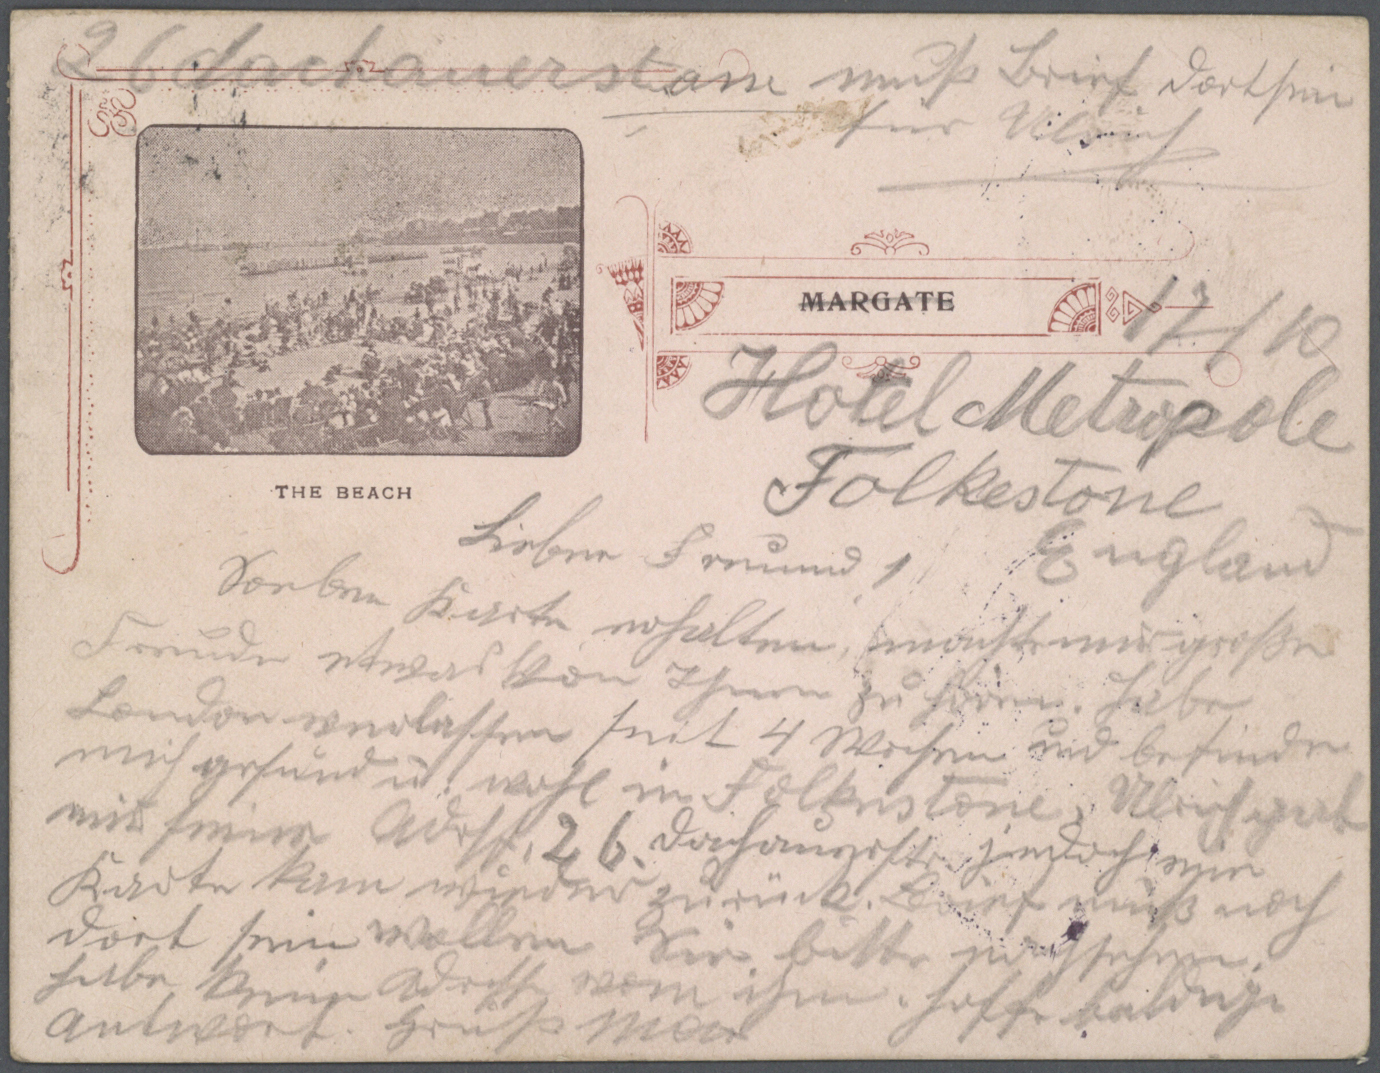 26 dachauerstrasse muß Brief dort sein
für Ulrich
MARGATE
17/10
Hotel Metropole
Folkestone
England
THE BEACH
Lieber Freund!
Soeben Karte erhalten, machte mir große
Freude etwas von Ihnen zu hören. habe
London verlassen seit 4 Wochen und befinde
mich gesund u. wohl in Folkestone, Ulrich gab
mir seine Adresse, 26. Dachauerstr. jedoch eine
Karte kam wieder zurück. Brief muß noch
dort sein wollen Sie bitte nachsehen.
habe keine Adresse von ihm. hoffe baldige
Antwort. Gruß